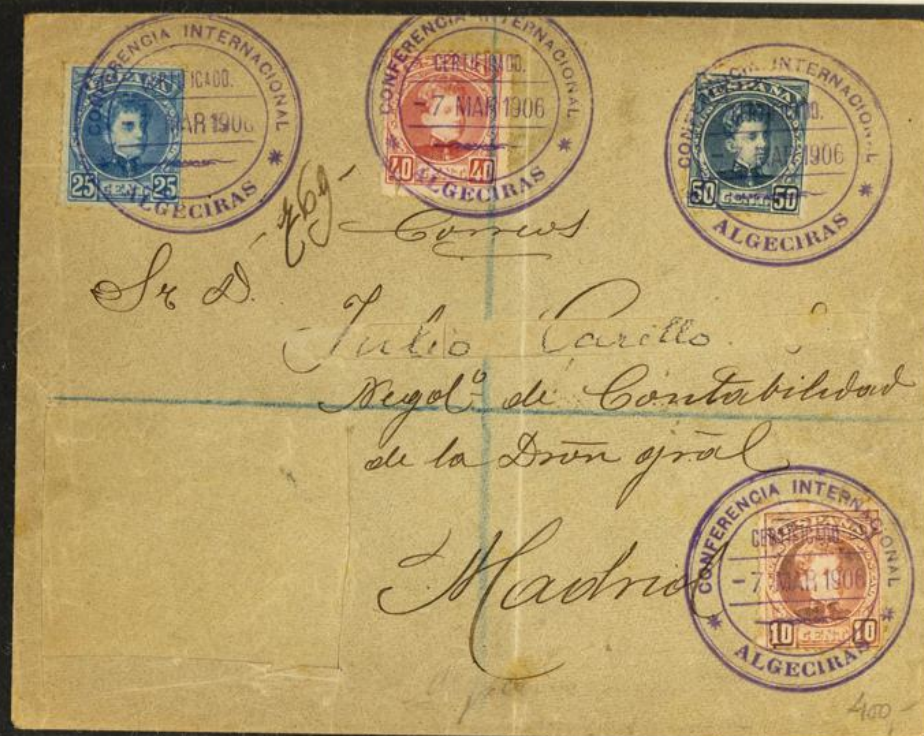 CONFERENCIA INTERNACIONAL
CERTIFICADO.
MAR 1906
* ALGECIRAS *
25 CENT. 25
CONFERENCIA INTERNACIONAL
CERTIFICADO.
-7 MAR 1906
* ALGECIRAS *
40 CENT. 40
CONFERENCIA INTERNACIONAL
CERTIFICADO.
-7 MAR 1906
* ALGECIRAS *
ESPAÑA
50 CENT. 50
Correos
Sr D.
Julio Carillo
Negdº de Contabilidad
de la Dron gral
Madrid
CONFERENCIA INTERNACIONAL
CERTIFICADO
-7 MAR 1906
* ALGECIRAS *
10 CENT. 10
400,-